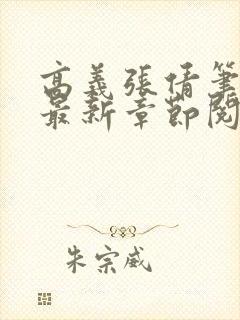 高義張倩筆
最新章節閱
朱宗威